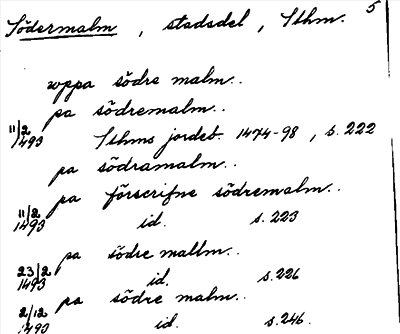 Södermalm, stadsdel, Sthm. 5
wppa södre malm..
pa södremalm..
11/2 1493 Sthms jordeb. 1474-98, s. 222
pa södramalm..
pa förscrifne södremalm..
11/2 1493 id. s. 223
pa södre mallm..
23/2 1493 id. s. 226
pa södre malm..
2/12 1493 id. s. 246.